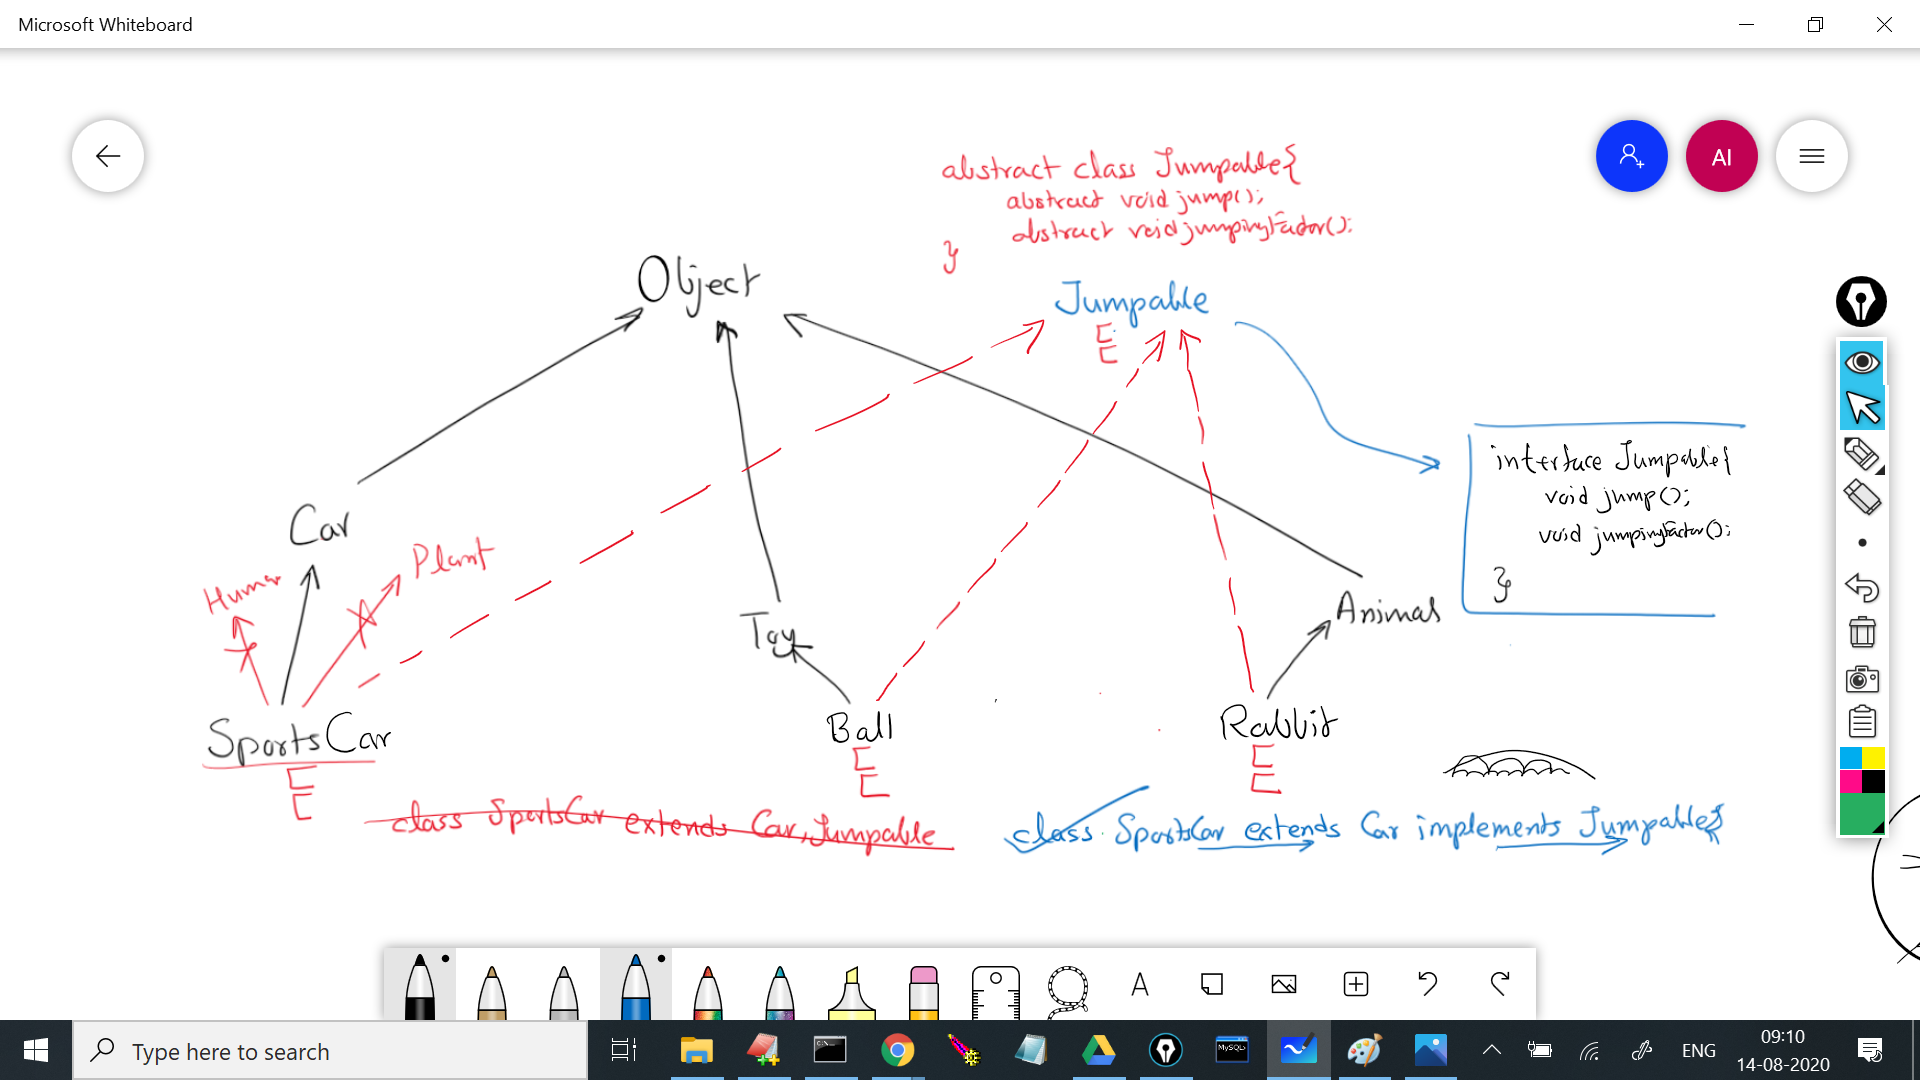 Microsoft Whiteboard
AI
abstract class Jumpable{
abstract void jump();
abstract void jumpingFactor();
}
Object
Jumpable
interface Jumpable{
void jump();
void jumpingFactor();
}
Car
Human
Plant
Toy
Animal
SportsCar
Ball
Rabbit
class SportsCar extends Car, Jumpable
class SportsCar extends Car implements Jumpable{
A
Type here to search
C:\
MySQL
ENG
09:10
14-08-2020